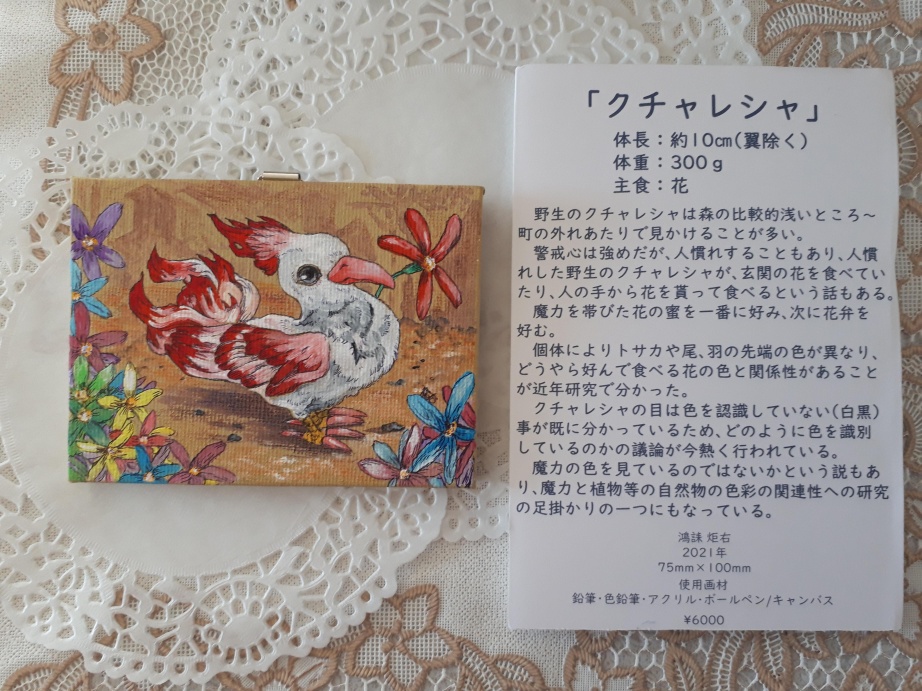 「クチャレシャ」
体長：約10㎝(翼除く)
体重：300ｇ
主食：花
野生のクチャレシャは森の比較的浅いところ～
町の外れあたりで見かけることが多い。
警戒心は強めだが、人慣れすることもあり、人慣
れした野生のクチャレシャが、玄関の花を食べてい
たり、人の手から花を貰って食べるという話もある。
魔力を帯びた花の蜜を一番に好み、次に花弁を
好む。
個体によりトサカや尾、羽の先端の色が異なり、
どうやら好んで食べる花の色と関係性があること
が近年研究で分かった。
クチャレシャの目は色を認識していない(白黒)
事が既に分かっているため、どのように色を識別
しているのかの議論が今熱く行われている。
魔力の色を見ているのではないかという説もあ
り、魔力と植物等の自然物の色彩の関連性への研究
の足掛かりの一つにもなっている。
鴻誄 炬右
2021年
75mm×100mm
使用画材
鉛筆・色鉛筆・アクリル・ボールペン/キャンバス
¥6000